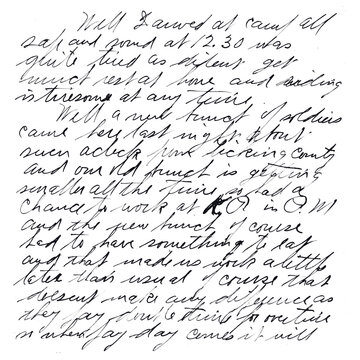 Well I arived at camp all
safe and sound at 12.30 was
quite tired as dident get
much rest at home and riding
is tiresome at any time.
Well a new bunch of soldiers
came here last night about
seven oclock from Licking County
and our old bunch is getting
smaller all the time so had a
chance to work at K.P. in P.M
and the new bunch of course
had to have something to eat
and that made us work a little
later than usual of course that
doesent make any diference as
they pay double time for overtime
so when pay day comes it will